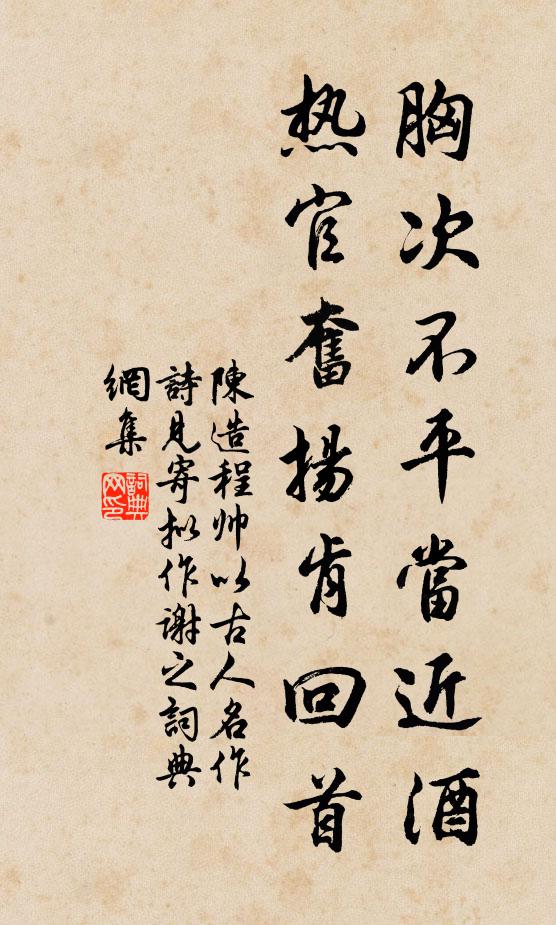 胸次不平當近酒
热官奮揚肯回首
陳造程帅以古人名作
詩見寄拟作谢之詞典
網集
詞典網印